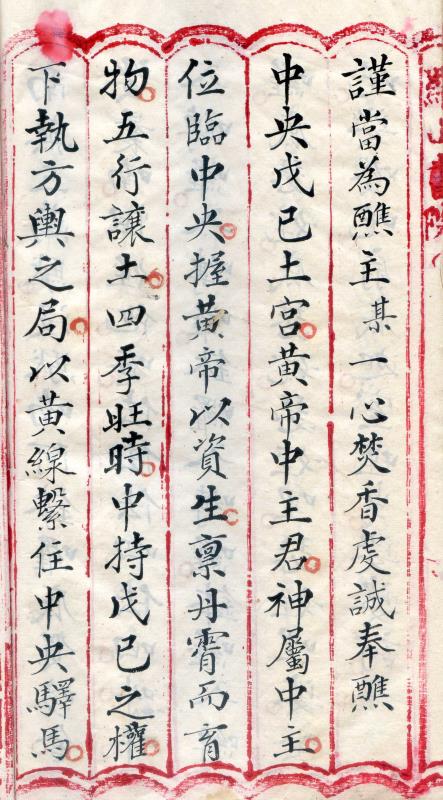 謹當為醮主某一心焚香虔誠奉醮
中央戊己土宮黄帝中主君神屬中王
位臨中央握黄帝以資生禀丹霄而育
物五行讓土四季旺時中持戊己之權
下執方輿之局以黄線繫住中央驛馬